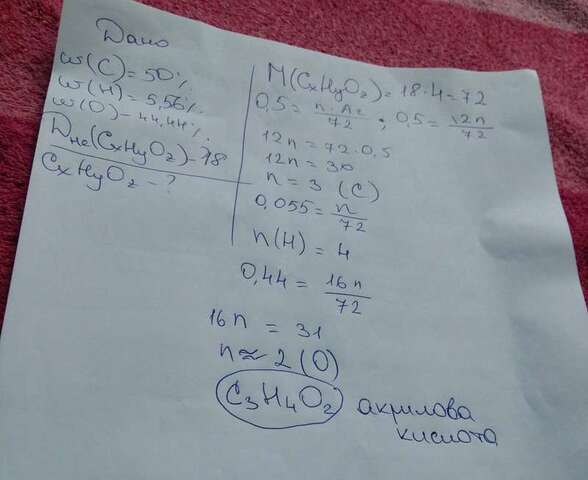 Дано
w(C) = 50%
w(H) = 5,56%
w(O) = 44,44%
Dне(CxHyOz) - 18
CxHyOz - ?
M(CxHyOz) = 18·4 = 72
0,5 = n·Ar/72 ; 0,5 = 12n/72
12n = 72·0,5
12n = 30
n = 3 (C)
0,055 = n/72
n(H) = 4
0,44 = 16n/72
16n = 31
n ≈ 2 (O)
C₃H₄O₂ акрилова
кислота